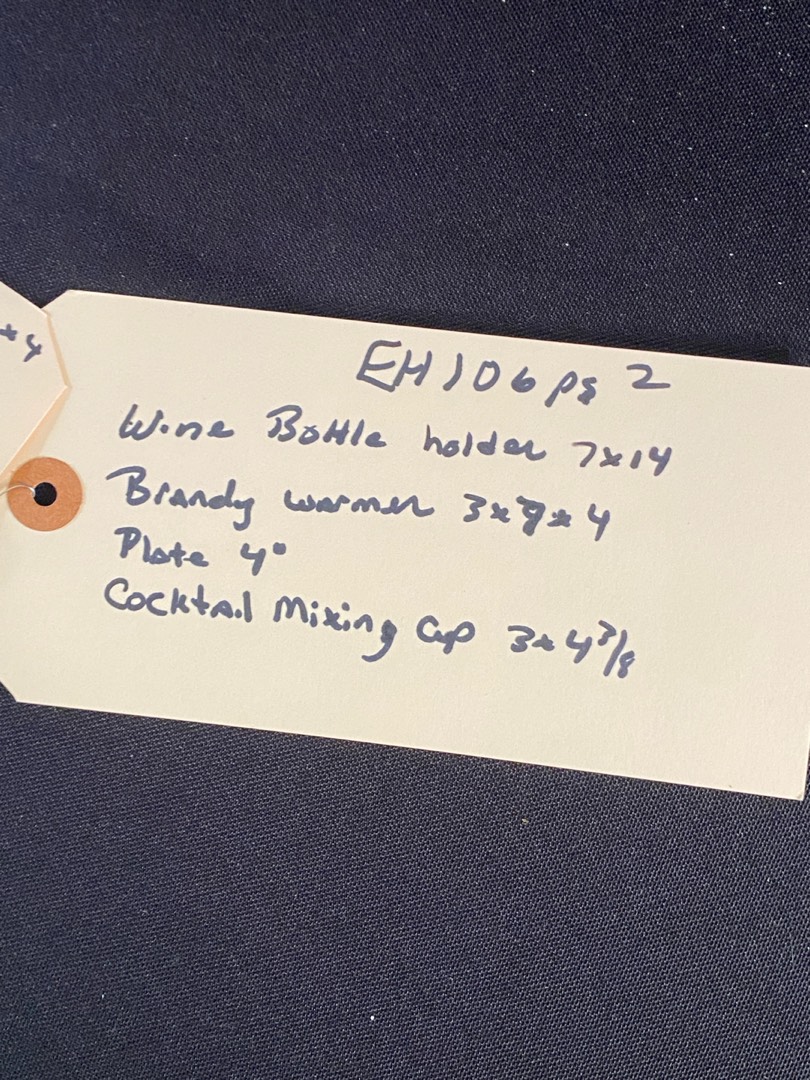 x 4
EH106 pg 2
Wine Bottle holder 7x14
Brandy warmer 3x x 4
Plate 4"
Cocktail Mixing Cup 3x4 3/8